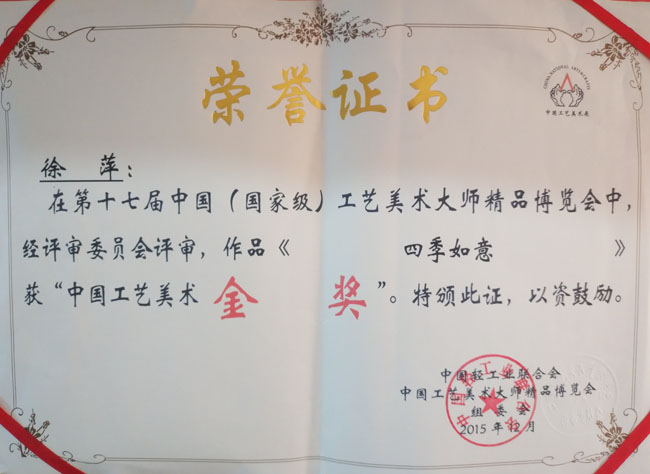 荣誉证书
CHINA NATIONAL ARTS&CRAFTS
中国工艺美术展
徐 萍：
在第十七届中国（国家级）工艺美术大师精品博览会中，
经评审委员会评审，作品《 四季如意 》
获“中国工艺美术 金 奖”。特颁此证，以资鼓励。
中国轻工业联合会
中国工艺美术大师精品博览会
组 委 会
2015 年 12 月